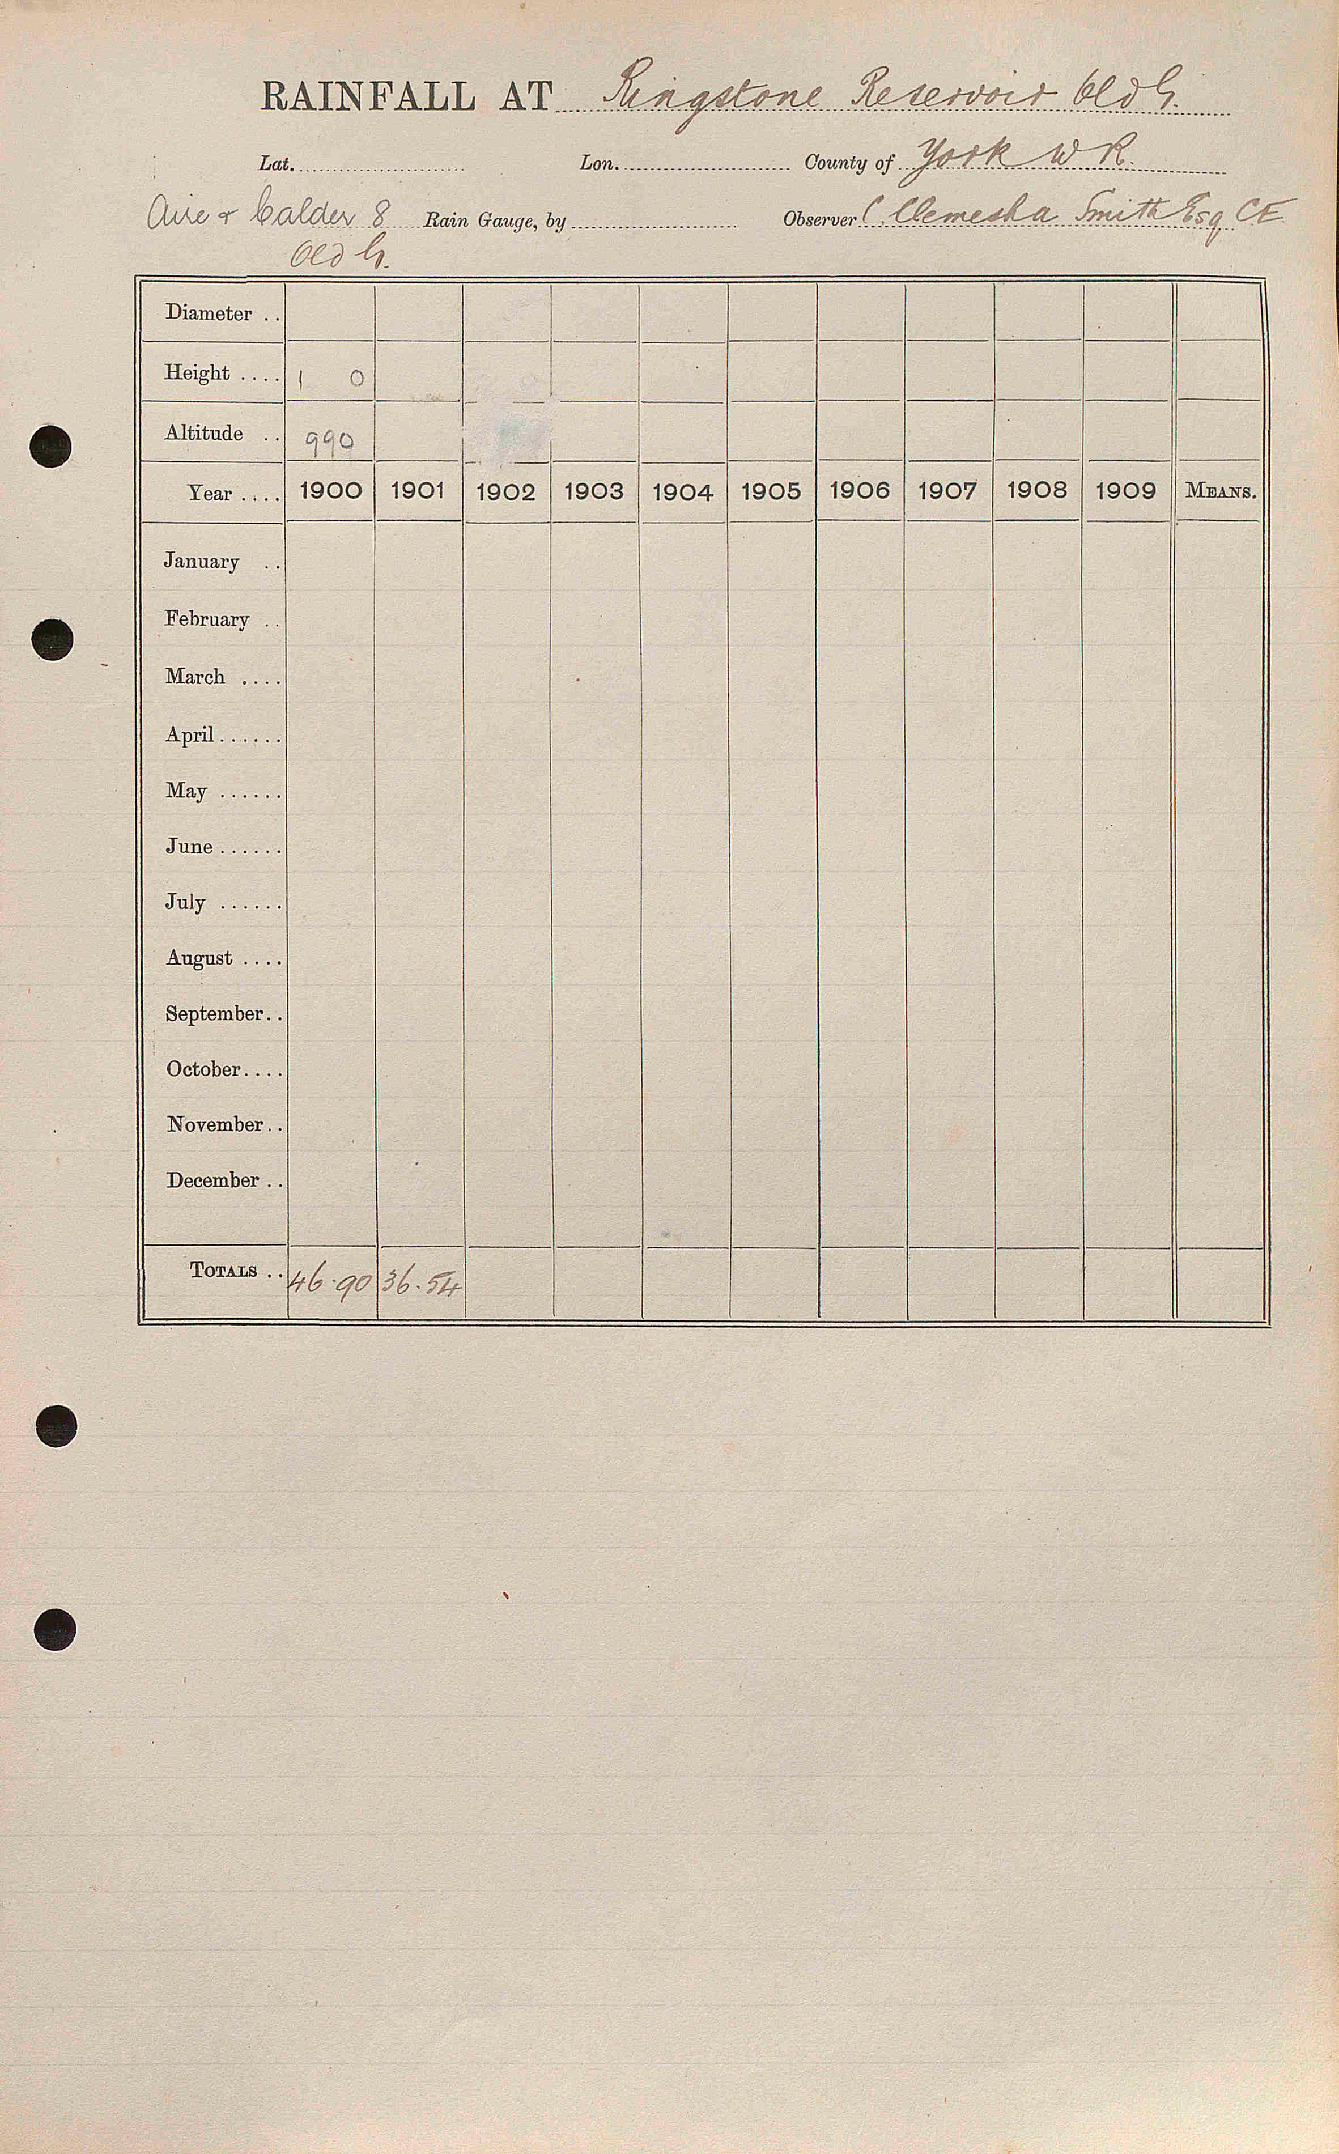 RAINFALL AT Ringstone Reservoir Old G.
Lat. Lon. County of York W R.
Aire & Calder 8 Rain Gauge, by Observer C Clemesha Smith Esq CE
Old G.
Diameter . .
Height . . . . 1 0
Altitude . . 990
Year . . . . 1900 1901 1902 1903 1904 1905 1906 1907 1908 1909 MEANS.
January . .
February . .
March . . . .
April . . . . . .
May . . . . . .
June . . . . . .
July . . . . . .
August . . . .
September . .
October . . . .
November . .
December . .
TOTALS . . 46.90 36.54